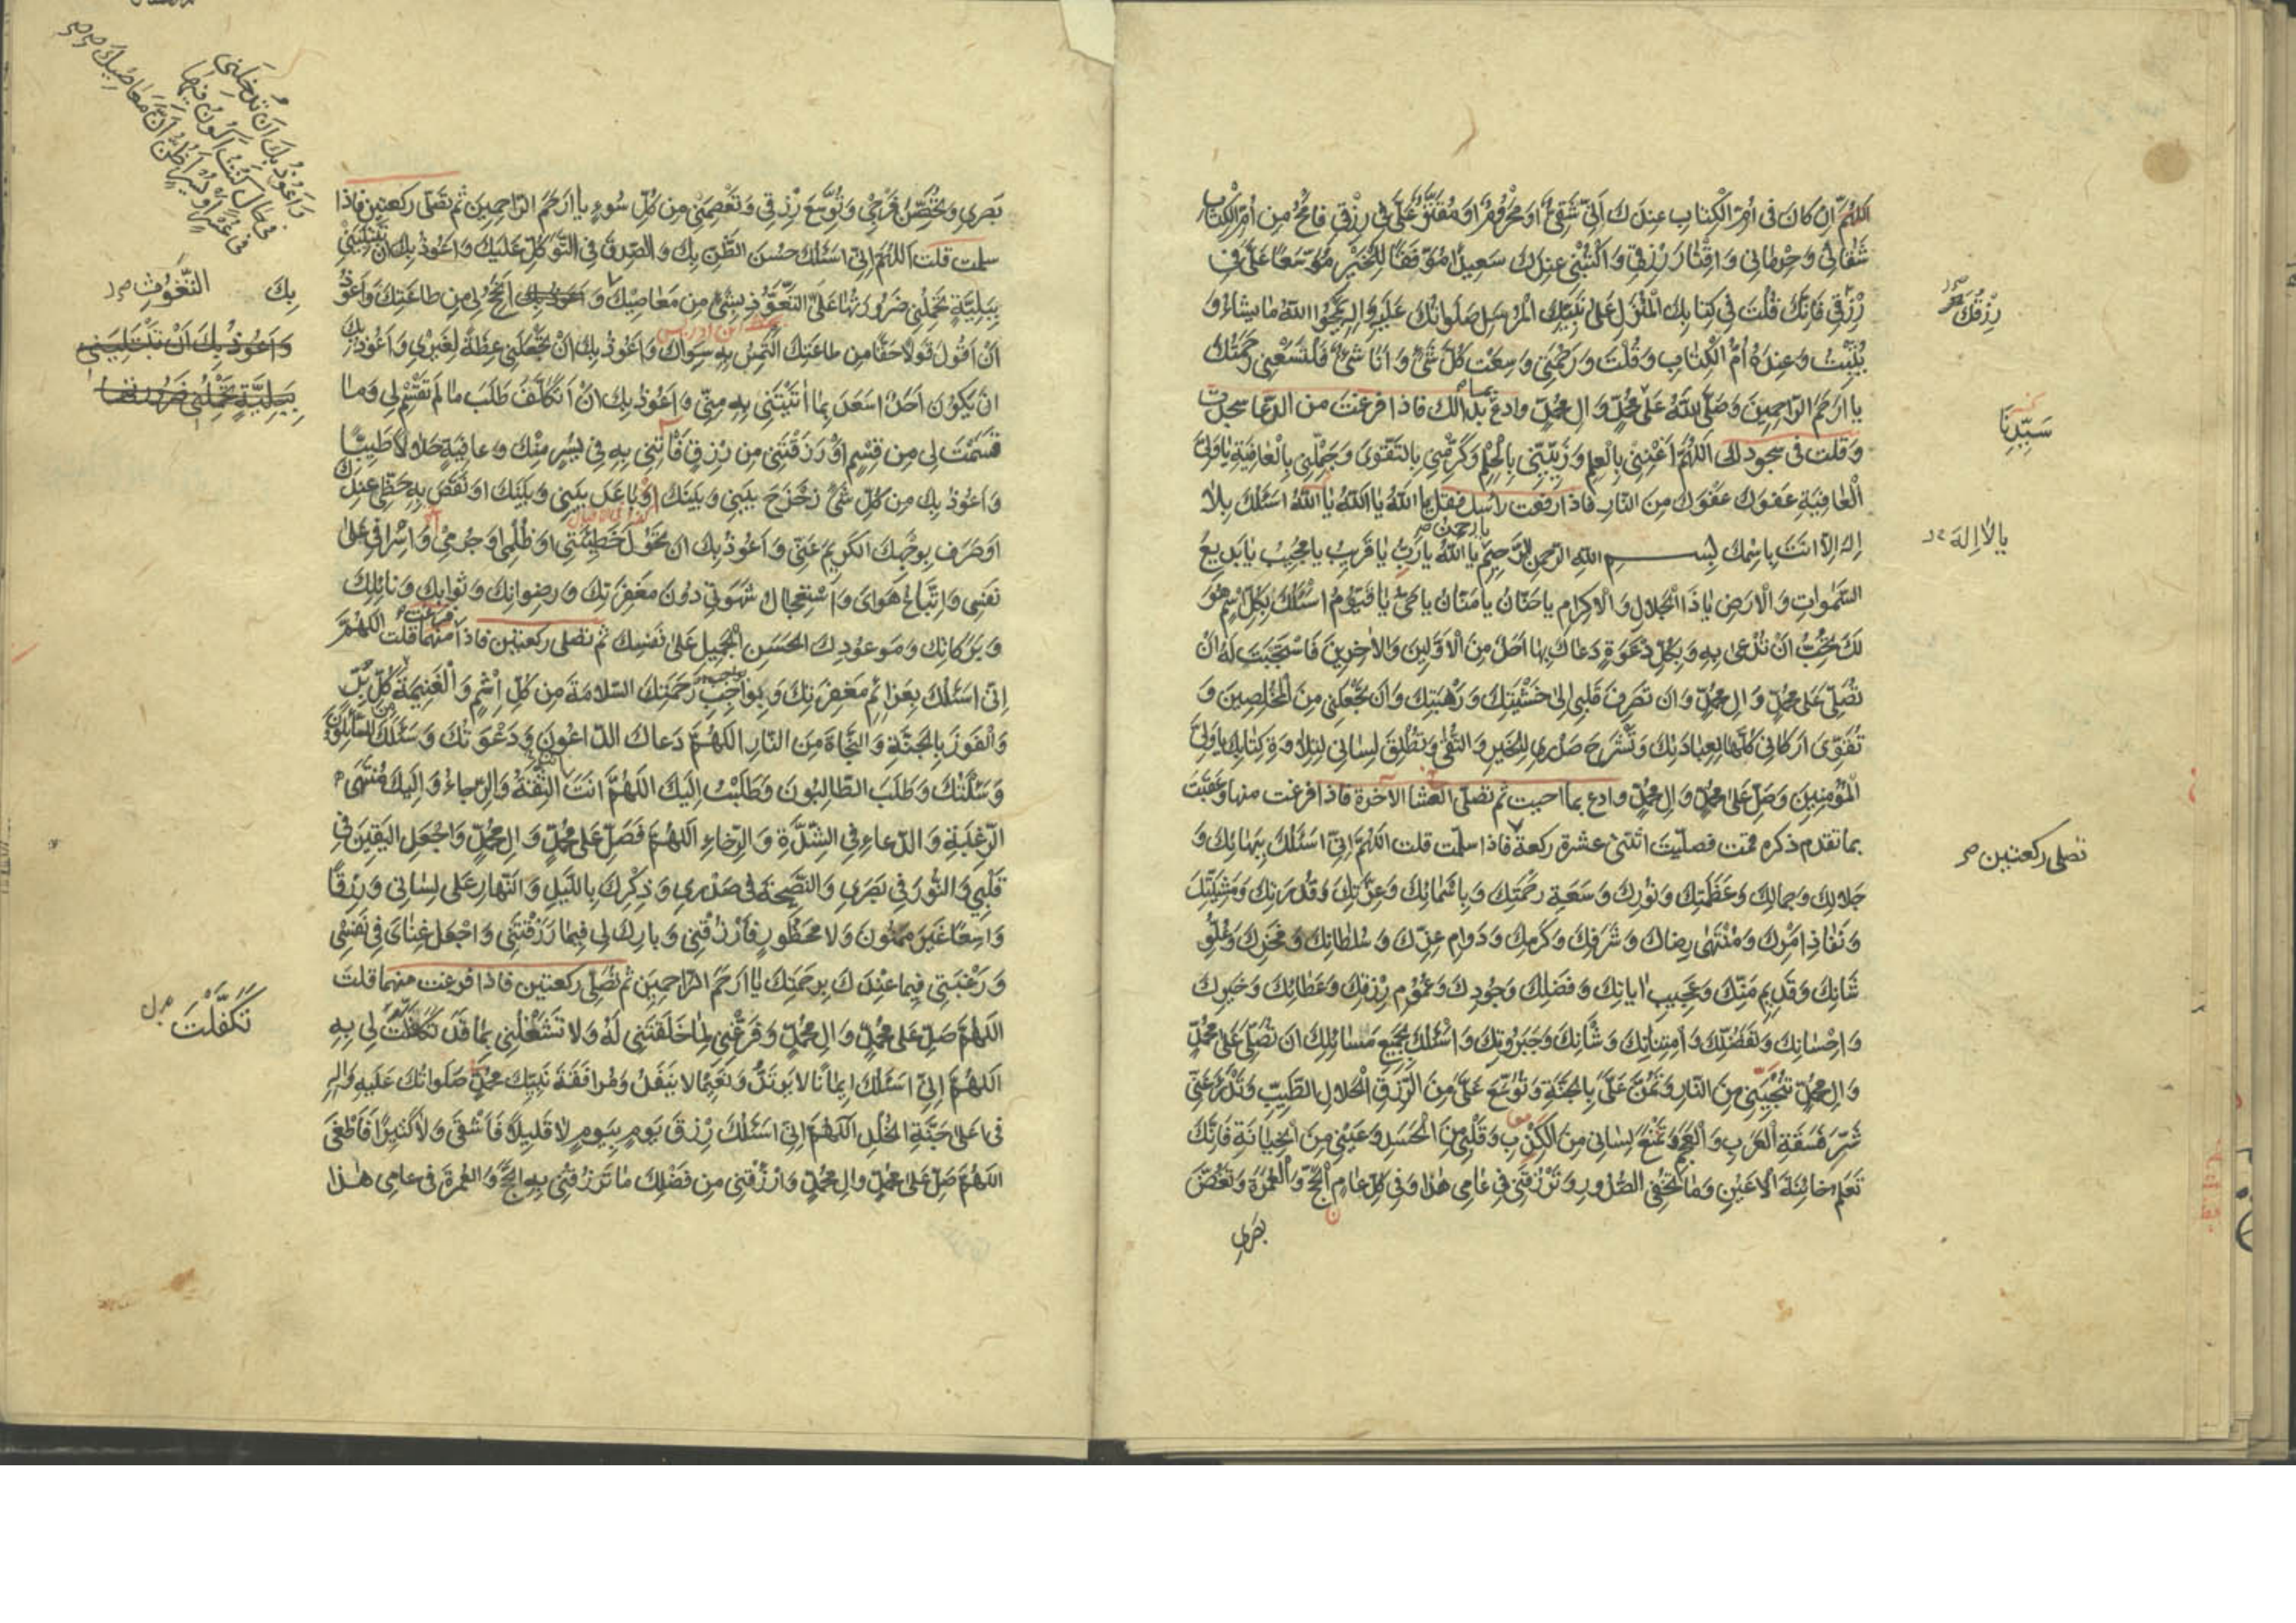 اللهم ان كان في ام الكتاب عندك اني شقي او محروم او مقتر علي في رزقي فامح من ام الكتاب
شقائي وحرماني واقتار رزقي واكتبني عندك سعيدا موفقا للخير موسعا علي في
رزقي فانك قلت في كتابك المنزل على نبيك المرسل صلواتك عليه واله يمحوا الله ما يشاء و
يثبت وعنده ام الكتاب وقلت ورحمتي وسعت كل شئ وانا شئ فلتسعني رحمتك
يا ارحم الراحمين وصلى الله على محمد وال محمد وادع بما بدا لك فاذا فرغت من الدعا سجدت
وقلت في سجودك اللهم اغنني بالعلم وزيني بالحلم وكرمني بالتقوى وجملني بالعافية يا ولي
العافية عفوك عفوك من النار فاذا رفعت راسك فقل يا الله يا الله يا الله اسئلك بلا
اله الا انت باسمك بسم الله الرحمن الرحيم يا رحمن يا الله يا رب يا قريب يا مجيب يا بديع
السموات والارض يا ذا الجلال والاكرام يا حنان يا منان يا حي يا قيوم اسئلك بكل اسم هو
لك تحب ان تدعى به وبكل دعوة دعاك بها احد من الاولين والاخرين فاستجبت له ان
تصلي على محمد وال محمد وان تصرف قلبي الى خشيتك ورهبتك وان تجعلني من المخلصين و
تقوي اركاني كلها لعبادتك وتشرح صدري للخير والتقى وتطلق لساني لتلاوة كتابك يا ولي
المؤمنين وصل على محمد وال محمد وادع بما احببت ثم تصلي العشا الاخرة فاذا فرغت منها وعقبت
بما تقدم ذكره قمت فصليت اثنتي عشرة ركعة فاذا سلمت قلت اللهم اني اسئلك ببهائك و
جلالك وجمالك وعظمتك ونورك وسعة رحمتك وباسمائك وعزتك وقدرتك ومشيتك
ونفاذ امرك ومنتهى رضاك وشرفك وكرمك ودوام عزك وسلطانك وفخرك وعلو
شانك وقديم منك وعجيب اياتك وفضلك وجودك وعموم رزقك وعطائك وخيرك
واحسانك وتفضلك وامتنانك وشانك وجبروتك واسئلك بجميع مسائلك ان تصلي على محمد
وال محمد وتنجيني من النار وتمن علي بالجنة وتوسع علي من الرزق الحلال الطيب وتدرء عني
شر فسقة العرب والعجم وتمنع لساني من الكذب وقلبي من الحسد وعيني من الخيانة فانك
تعلم خائنة الاعين وما تخفي الصدور وترزقني في عامي هذا وفي كل عام الحج والعمرة وتغض
بصري
رزقك
سيدنا
يا لا اله
تصلي ركعتين
بصري وتحصن فرجي وتوسع رزقي وتعصمني من كل سوء يا ارحم الراحمين ثم تصلي ركعتين فاذا
سلمت قلت اللهم اني اسئلك حسن الظن بك والصدق في التوكل عليك واعوذ بك ان تبتليني
ببلية تحملني ضرورتها على التعوذ بشئ من معاصيك واعوذ بك
ان اقول قولا حقا من طاعتك التمس به سواك واعوذ بك ان تجعلني عظة لغيري واعوذ بك
ان يكون احد اسعد بما اتيتني به مني واعوذ بك ان اتكلف طلب ما لم تقسم لي وما
قسمت لي من قسم او رزقتني من رزق فاتني به في يسر منك وعافية حلالا طيبا
واعوذ بك من كل شئ زحزح بيني وبينك او باعد بيني وبينك او نقص به حظي عندك
او صرف بوجهك الكريم عني واعوذ بك ان تحول خطيئتي او ظلمي او جرمي واسرافي على
نفسي واتباع هواي واستعجال شهوتي دون مغفرتك ورضوانك وثوابك ونائلك
وبركاتك وموعودك الحسن الجميل على نفسك ثم تصلي ركعتين فاذا فرغت منهما قلت اللهم
اني اسئلك بعزائم مغفرتك وبواجب رحمتك السلامة من كل اثم والغنيمة من كل بر
والفوز بالجنة والنجاة من النار اللهم دعاك الداعون ودعوتك وسئلك السائلون
وسئلتك وطلب الطالبون وطلبت اليك اللهم انت الثقة والرجاء واليك منتهى
الرغبة والدعاء في الشدة والرخاء اللهم فصل على محمد وال محمد واجعل اليقين في
قلبي والنور في بصري والنصيحة في صدري وذكرك بالليل والنهار على لساني ورزقا
واسعا غير ممنون ولا محظور فارزقني وبارك لي فيما رزقتني واجعل غناي في نفسي
ورغبتي فيما عندك برحمتك يا ارحم الراحمين ثم تصلي ركعتين فاذا فرغت منهما قلت
اللهم صل على محمد وال محمد وفرغني لما خلقتني له ولا تشغلني بما قد تكفلت لي به
اللهم اني اسئلك ايمانا لا يرتد ونعيما لا ينفد ومرافقة نبيك محمد صلواتك عليه واله
في اعلى جنة الخلد اللهم اني اسئلك رزق يوم بيوم لا قليلا فاشقى ولا كثيرا فاطغى
اللهم صل على محمد وال محمد وارزقني من فضلك ما ترزقني به الحج والعمرة في عامي هذا
واعوذ بك ان تدخلني
في حال كنت اكون فيها
في عسر او يسر اظن ان معاصيك
بك
التغوث
واعوذ بك ان تبتليني
ببلية تحملني ضرورتها
تكفلت